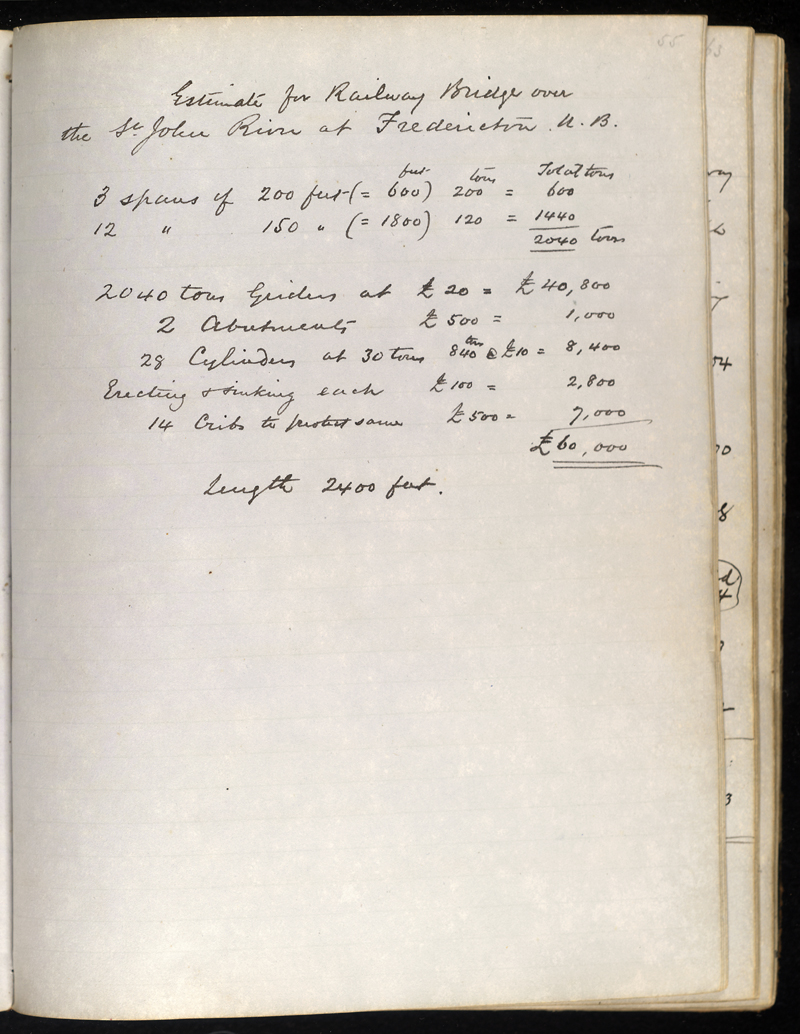 55
63
Estimate for Railway Bridge over
the St John River at Fredericton. N. B.
feet tons Total tons
3 spans of 200 feet (= 600) 200 = 600
12 " 150 " (= 1800) 120 = 1440
2040 tons
2040 tons Girders at £20 = £40,800
2 Abutments £500 = 1,000
tons
28 Cylinders at 30 tons 840 @ £10 = 8,400
Erecting & sinking each £100 = 2,800
14 Cribs to protect same £500 = 7,000
£60,000
Length 2400 feet.